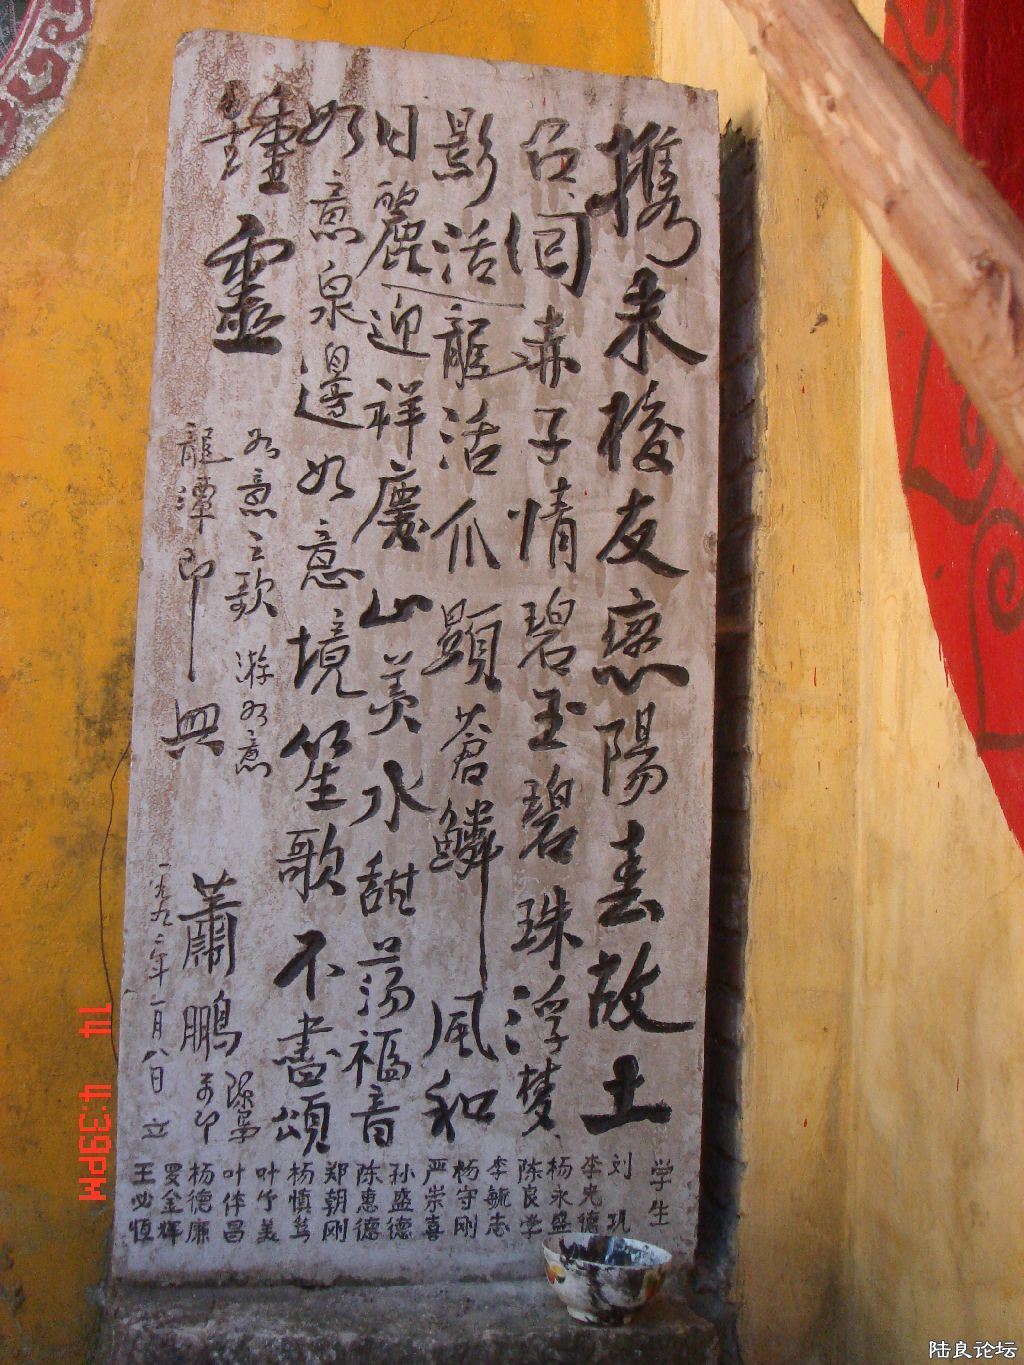 携来校友恋陽春故土
召回赤子情碧玉碧珠浮梦
影活龍活爪顯蒼鱗風和
日麗迎祥慶山美水甜荡福音
如意泉邊如意境笙歌不盡頌
鍾靈
如意之歌 游如意
龍潭即興
蕭鵬
一九九二年一月八日 立
学生
刘巩
李光德
杨永盛
陈良学
李毓志
杨守刚
严崇喜
孙盛德
陈惠德
郑朝刚
杨慎笃
叶竹美
叶伴昌
杨德廉
罗金辉
王必恒
14 4:39PM
陆良论坛